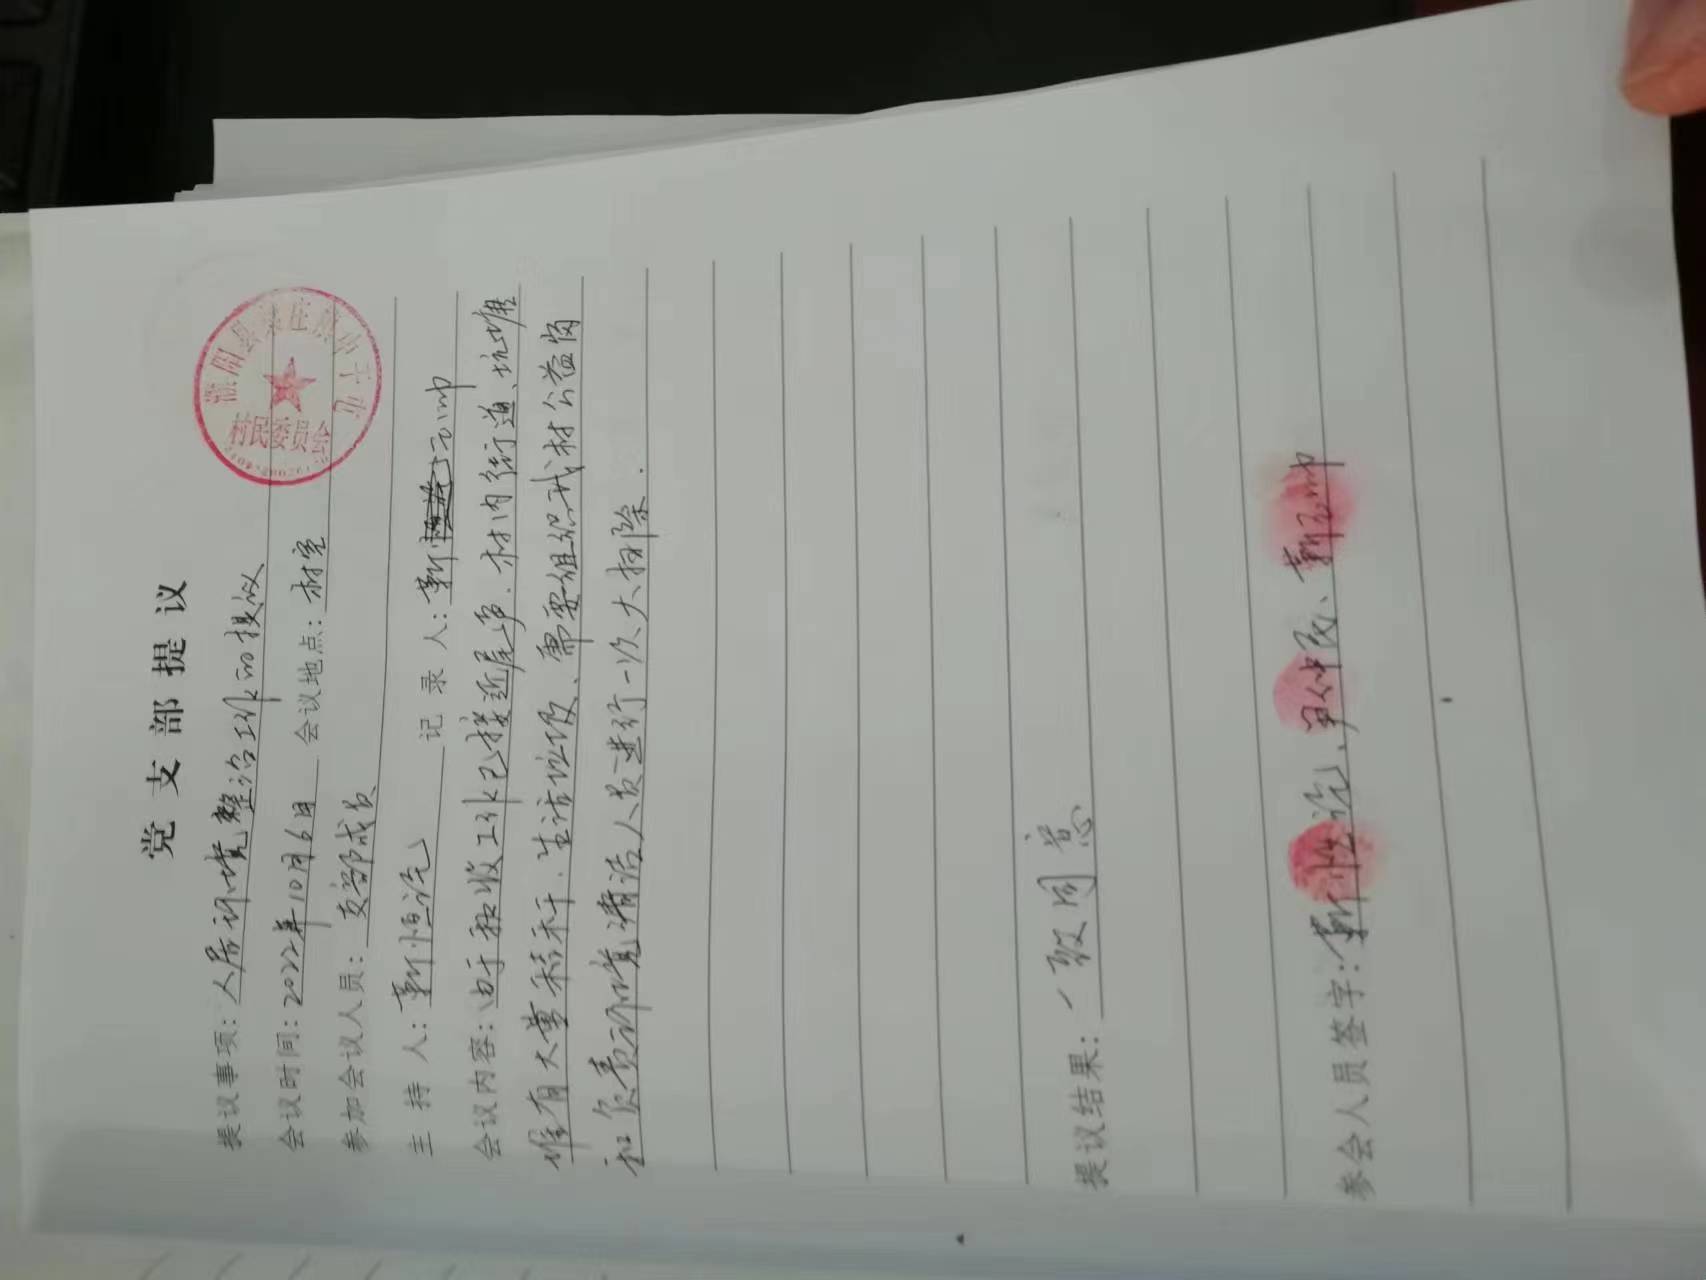 党支部提议
提议事项：人居环境整治工作的提议
会议时间：2022年10月6日 会议地点：村室
参加会议人员：支部成员
主持人：靳恒 记录人：靳
会议内容：由于秋收工作已接近尾声．村内街道、坑塘
堆有大量秸秆、生活垃圾、需要组织我村公益岗
和负责环境清洁人员进行一次大扫除．
提议结果：一致同意
参会人员签字：靳恒
濮阳县
村民委员会